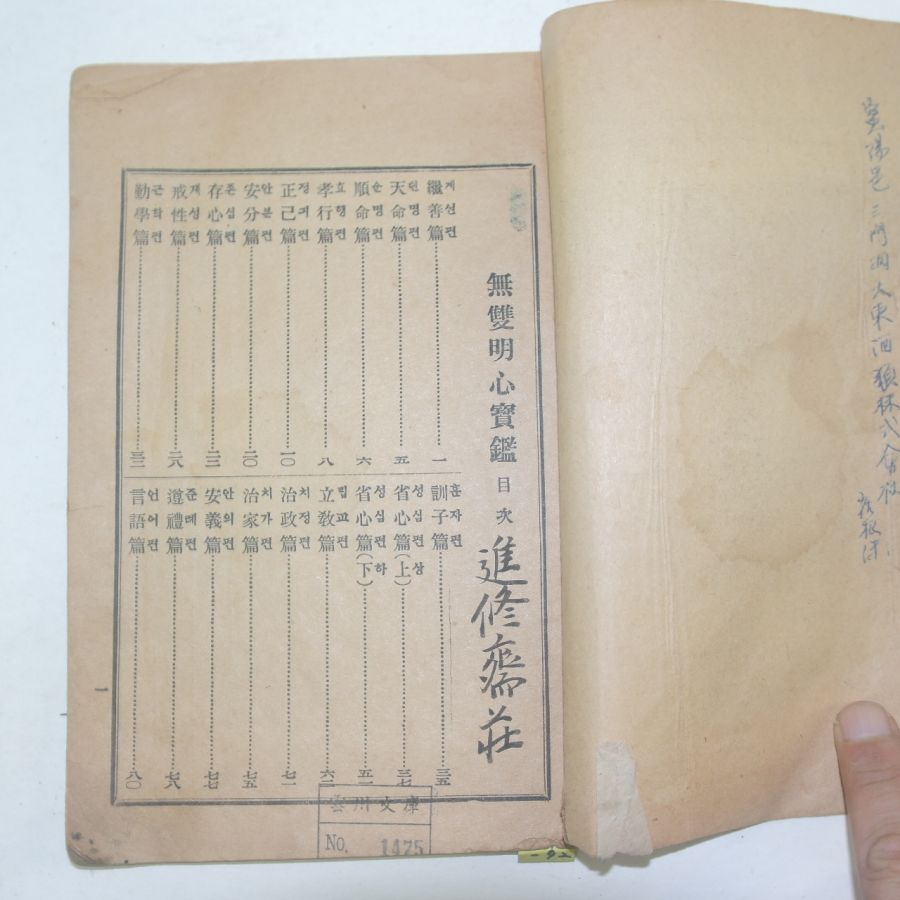 密陽邑三門洞大東酒類株式會社
無雙明心寶鑑 目次
進修齋莊
繼善篇 계선편 一
天命篇 텬명편 五
順命篇 순명편 六
孝行篇 효행편 八
正己篇 정긔편 一〇
安分篇 안분편 二〇
存心篇 존심편 二三
戒性篇 계성편 二八
勤學篇 근학편 三二
訓子篇 훈자편 三五
省心篇(上) 성심편상 三七
省心篇(下) 성심편하 五一
立敎篇 립교편 六二
治政篇 치정편 七一
治家篇 치가편 七五
安義篇 안의편 七七
遵禮篇 준례편 七八
言語篇 언어편 八〇
一
雲川文庫
No. 1475